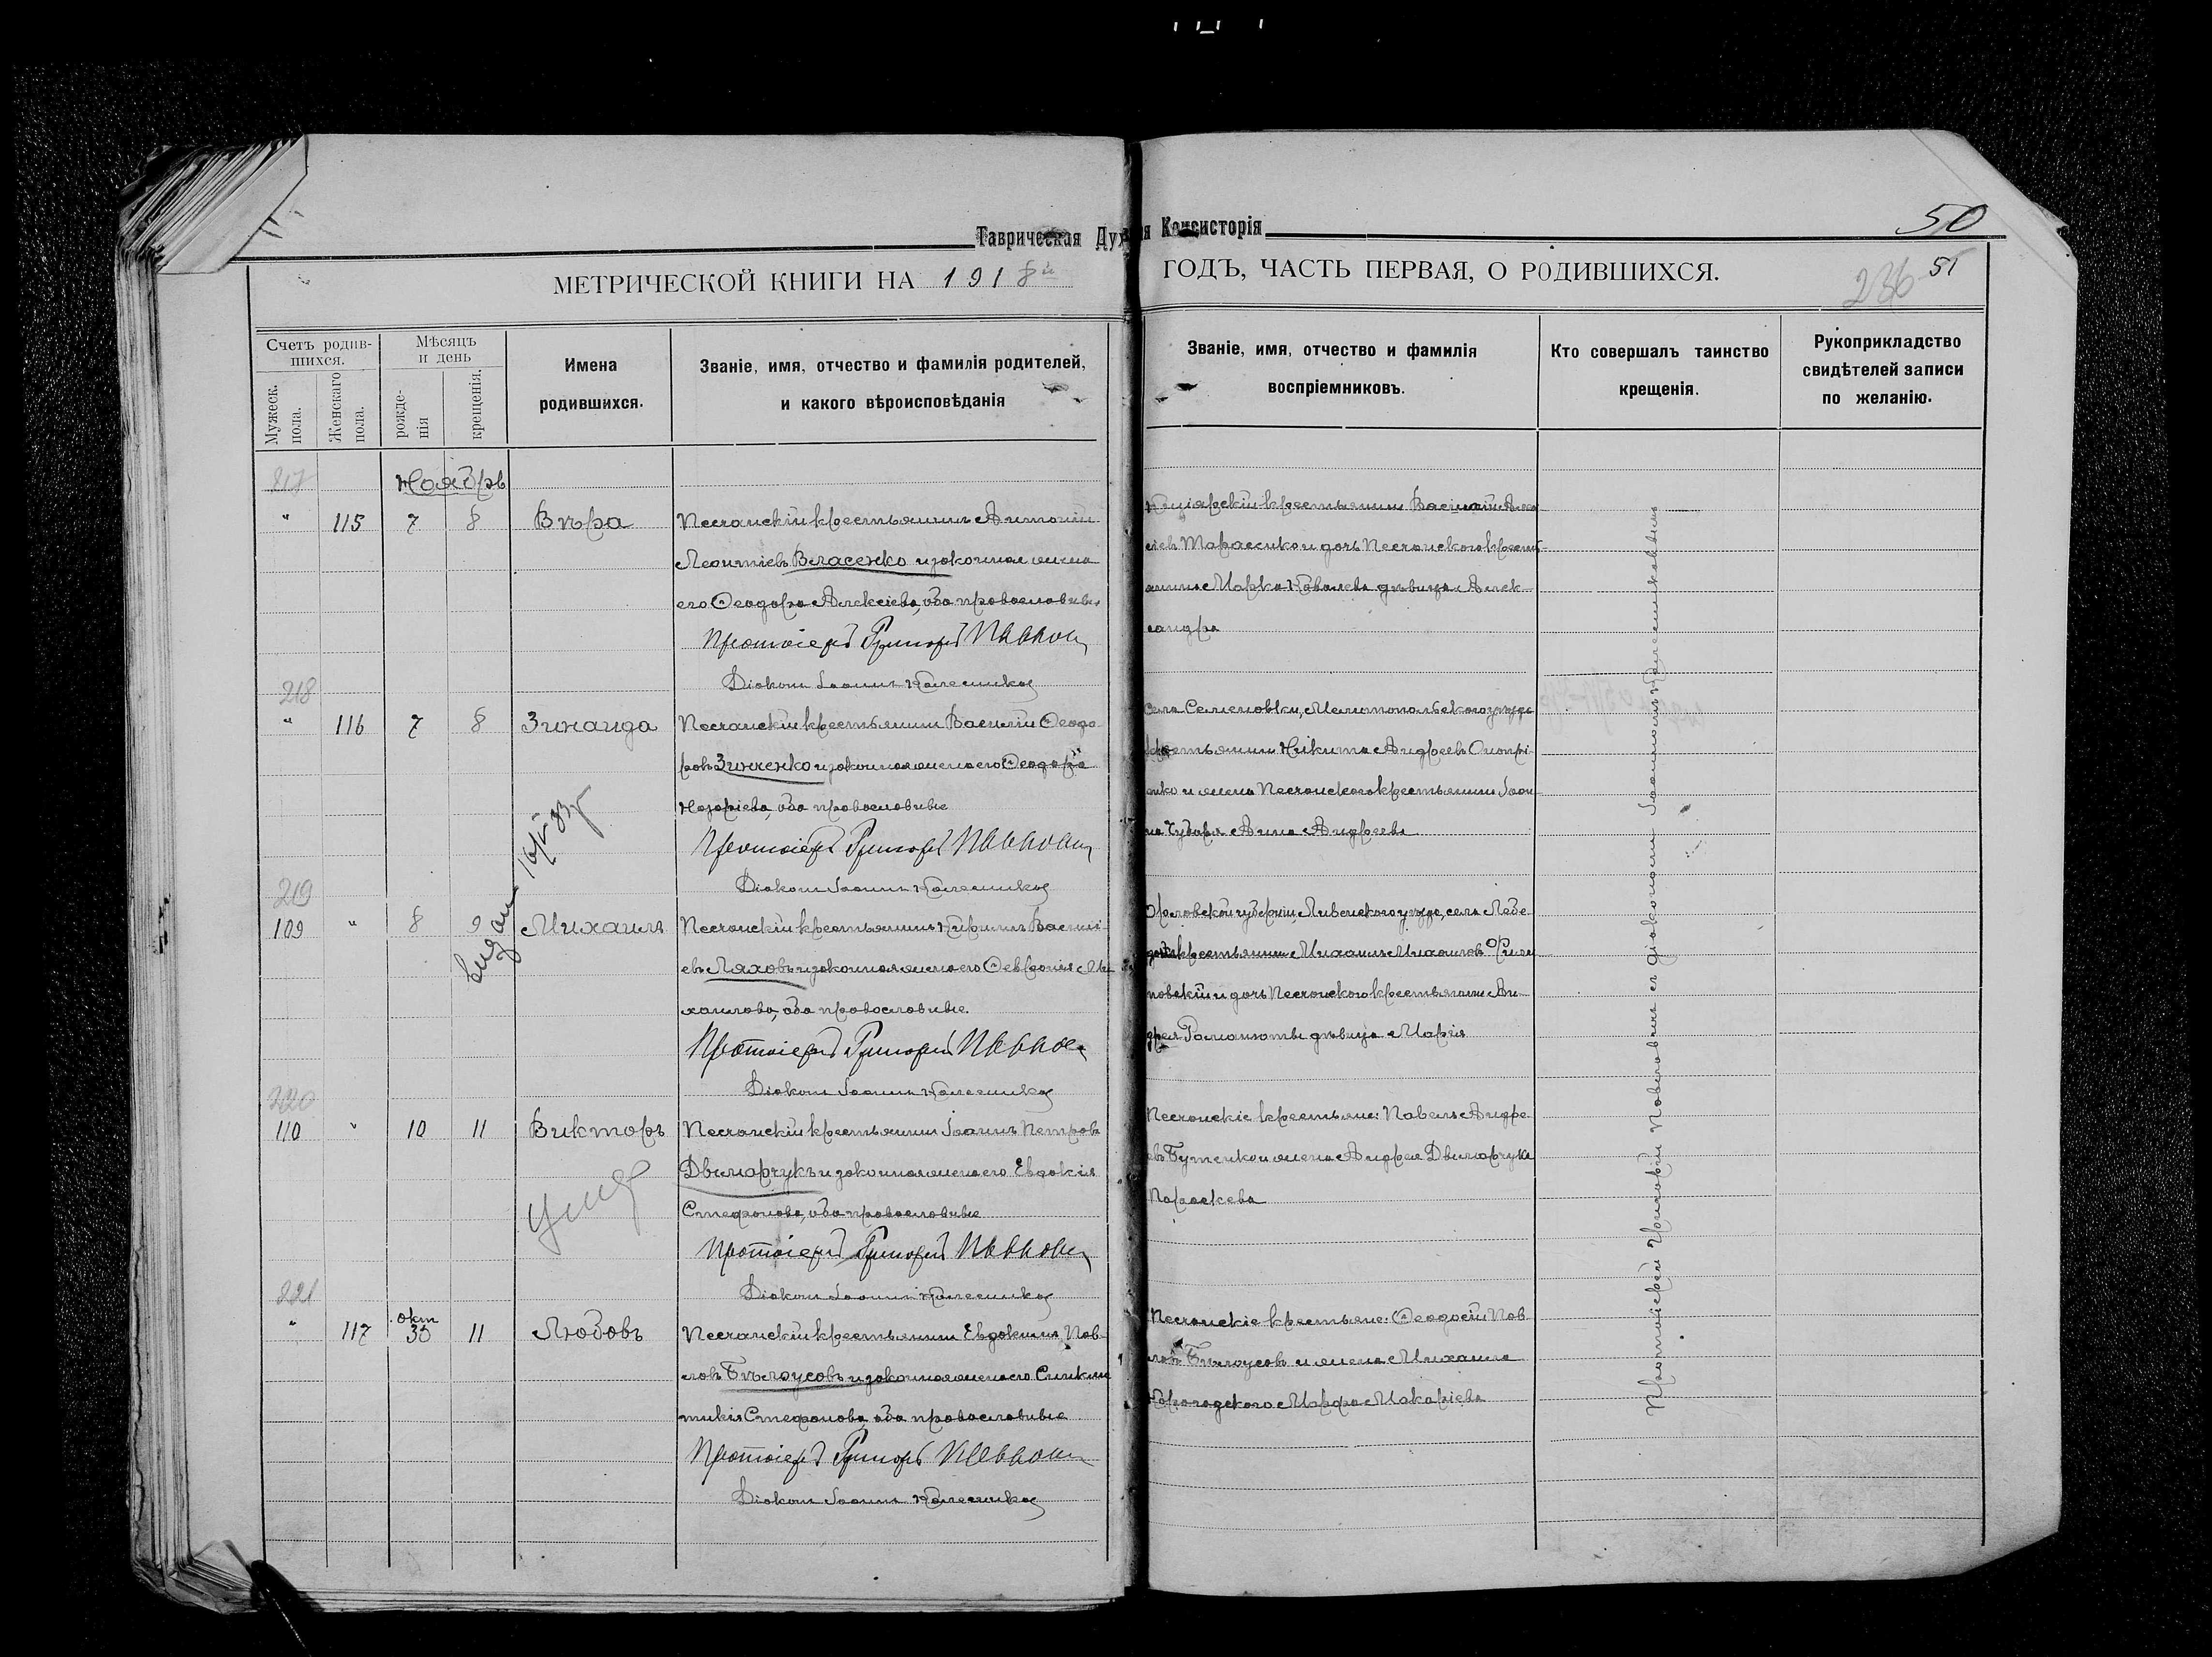 Таврическая Дух
я Консисторія
50
51
236
МЕТРИЧЕСКОЙ КНИГИ НА 1918й
ГОДЪ, ЧАСТЬ ПЕРВАЯ, О РОДИВШИХСЯ.
Счетъ родив-
шихся.
Мужеск.
пола.
Женскаго
пола.
Мѣсяцъ
и день
рожде-
нія
крещенія.
Имена
родившихся.
Званіе, имя, отчество и фамилія родителей,
и какого вѣроисповѣданія
Званіе, имя, отчество и фамилія
воспріемниковъ.
Кто совершалъ таинство
крещенія.
Рукоприкладство
свидѣтелей записи
по желанію.
217
Ноябрь
" 115 7 8 Вѣра
Песчанскій крестьянинъ Антоній
Леонтіевъ Власенко и законная жена
его Ѳеодора Алексіева, оба православные
Протоіерей Григорій
Діаконъ Іоаннъ Колесниковъ
крестьянинъ Василій Алек
сіевъ Тарасенко и дочь Песчанскаго крест-
янина Марка Ковалева дѣвица Алек
сандра
218
" 116 7 8 Зинаида
Песчанскій крестьянинъ Василій Ѳеодо
ровъ Зинченко и законная жена его Ѳеодора
Назаріева, оба православные
Протоіерей Григорій
Діаконъ Іоаннъ Колесниковъ
Села Семеновки, Мелитопольскаго уѣзда
крестьянинъ Никита Андреевъ Онопрі
енко и жена Песчанскаго крестьянина Іоан
на Чубаря Анна Андреева
219
109 " 8 9 Михаилъ
Песчанскій крестьянинъ Кириллъ Василі
евъ Ляховъ и законная жена его Ѳеѵронія Ми
хаилова, оба православные.
Протоіерей Григорій
Діаконъ Іоаннъ Колесниковъ
Орловской губерніи, Ливенскаго уѣзда, села Лебе
крестьянинъ Михаилъ Михаиловъ
новскій и дочь Песчанскаго крестьянина Ан-
дрея дѣвица Марія
220
110 " 10 11 Викторъ
Песчанскій крестьянинъ Іоаннъ Петровъ
Двинарчукъ и законная жена его Евдокія
Стефанова, оба православные
Протоіерей Григорій
Діаконъ Іоаннъ Колесниковъ
Песчанскіе крестьяне: Павелъ Андре
евъ Бутенко и жена Андрея Двинарчука
Параскева
221
" 117 окт 30 11 Любовь
Песчанскій крестьянинъ Евдокимъ Пав
ловъ Бѣлоусовъ и законная жена его Синкли
тикія Стефанова, оба православные
Протоіерей Григорій
Діаконъ Іоаннъ Колесниковъ
Песчанскіе крестьяне: Ѳеодосій Пав
ловъ Бѣлоусовъ и жена Михаила
Марѳа Макаріева
Протоіерей Григорій съ діакономъ Іоанномъ Колесниковымъ